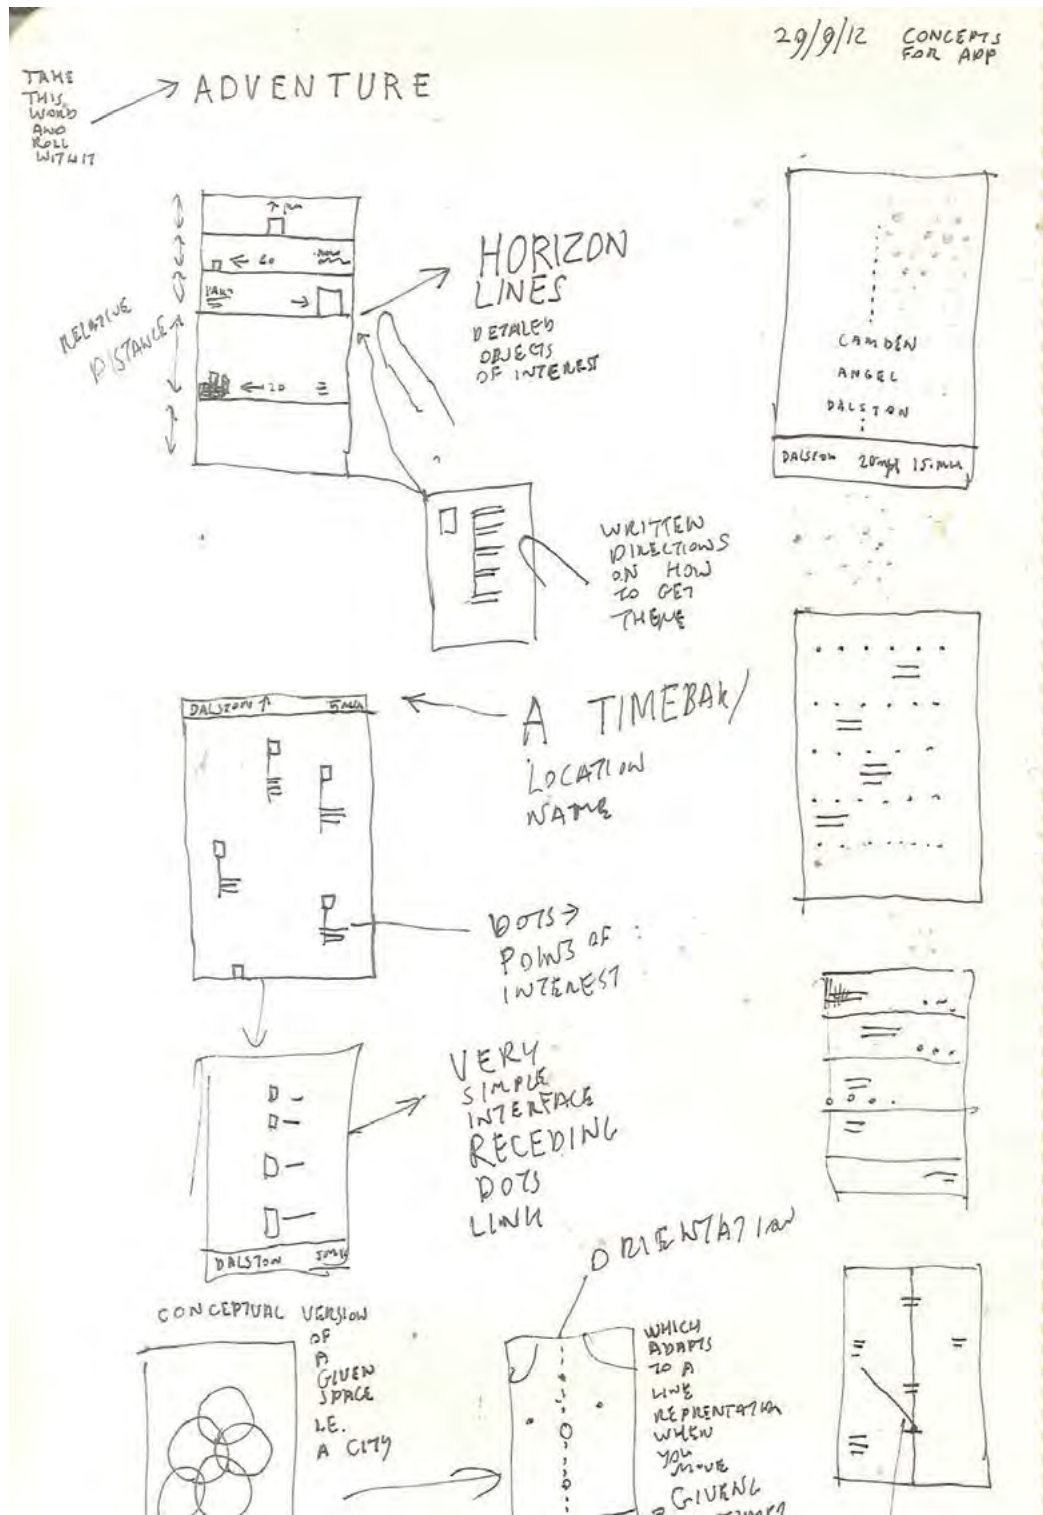 29/9/12 CONCEPTS
FOR APP
TAKE
THIS
WORD
AND
ROLL
WITH IT
ADVENTURE
HORIZON
LINES
DETAILED
OBJECTS
OF INTEREST
RELATIVE
DISTANCE
← 60
← 20
CAMDEN
ANGEL
DALSTON
DALSTON 20mph 15.min
WRITTEN
DIRECTIONS
ON HOW
TO GET
THERE
DALSTON ↑ 5min
A TIMEBAR/
LOCATION
NAME
DOTS →
POINTS OF
INTEREST
VERY
SIMPLE
INTERFACE
RECEDING
DOTS
LINK
DALSTON
ORIENTATION
CONCEPTUAL VERSION
OF
A
GIVEN
SPACE
I.E.
A CITY
WHICH
ADAPTS
TO A
LINE
REPRENTATION
WHEN
YOU
MOVE
GIVENG